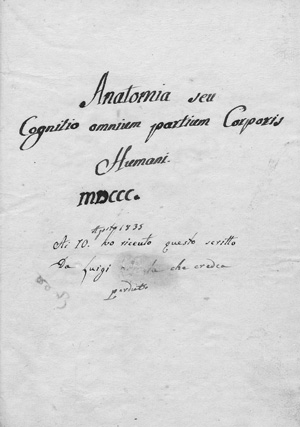 Anatomia seu
Cognitio omnium partium Corporis
Humani.
MDCCC.
Agosto 1835
Ai 10. ho ricevuto questo scritto
Da Luigi che credea
perduto